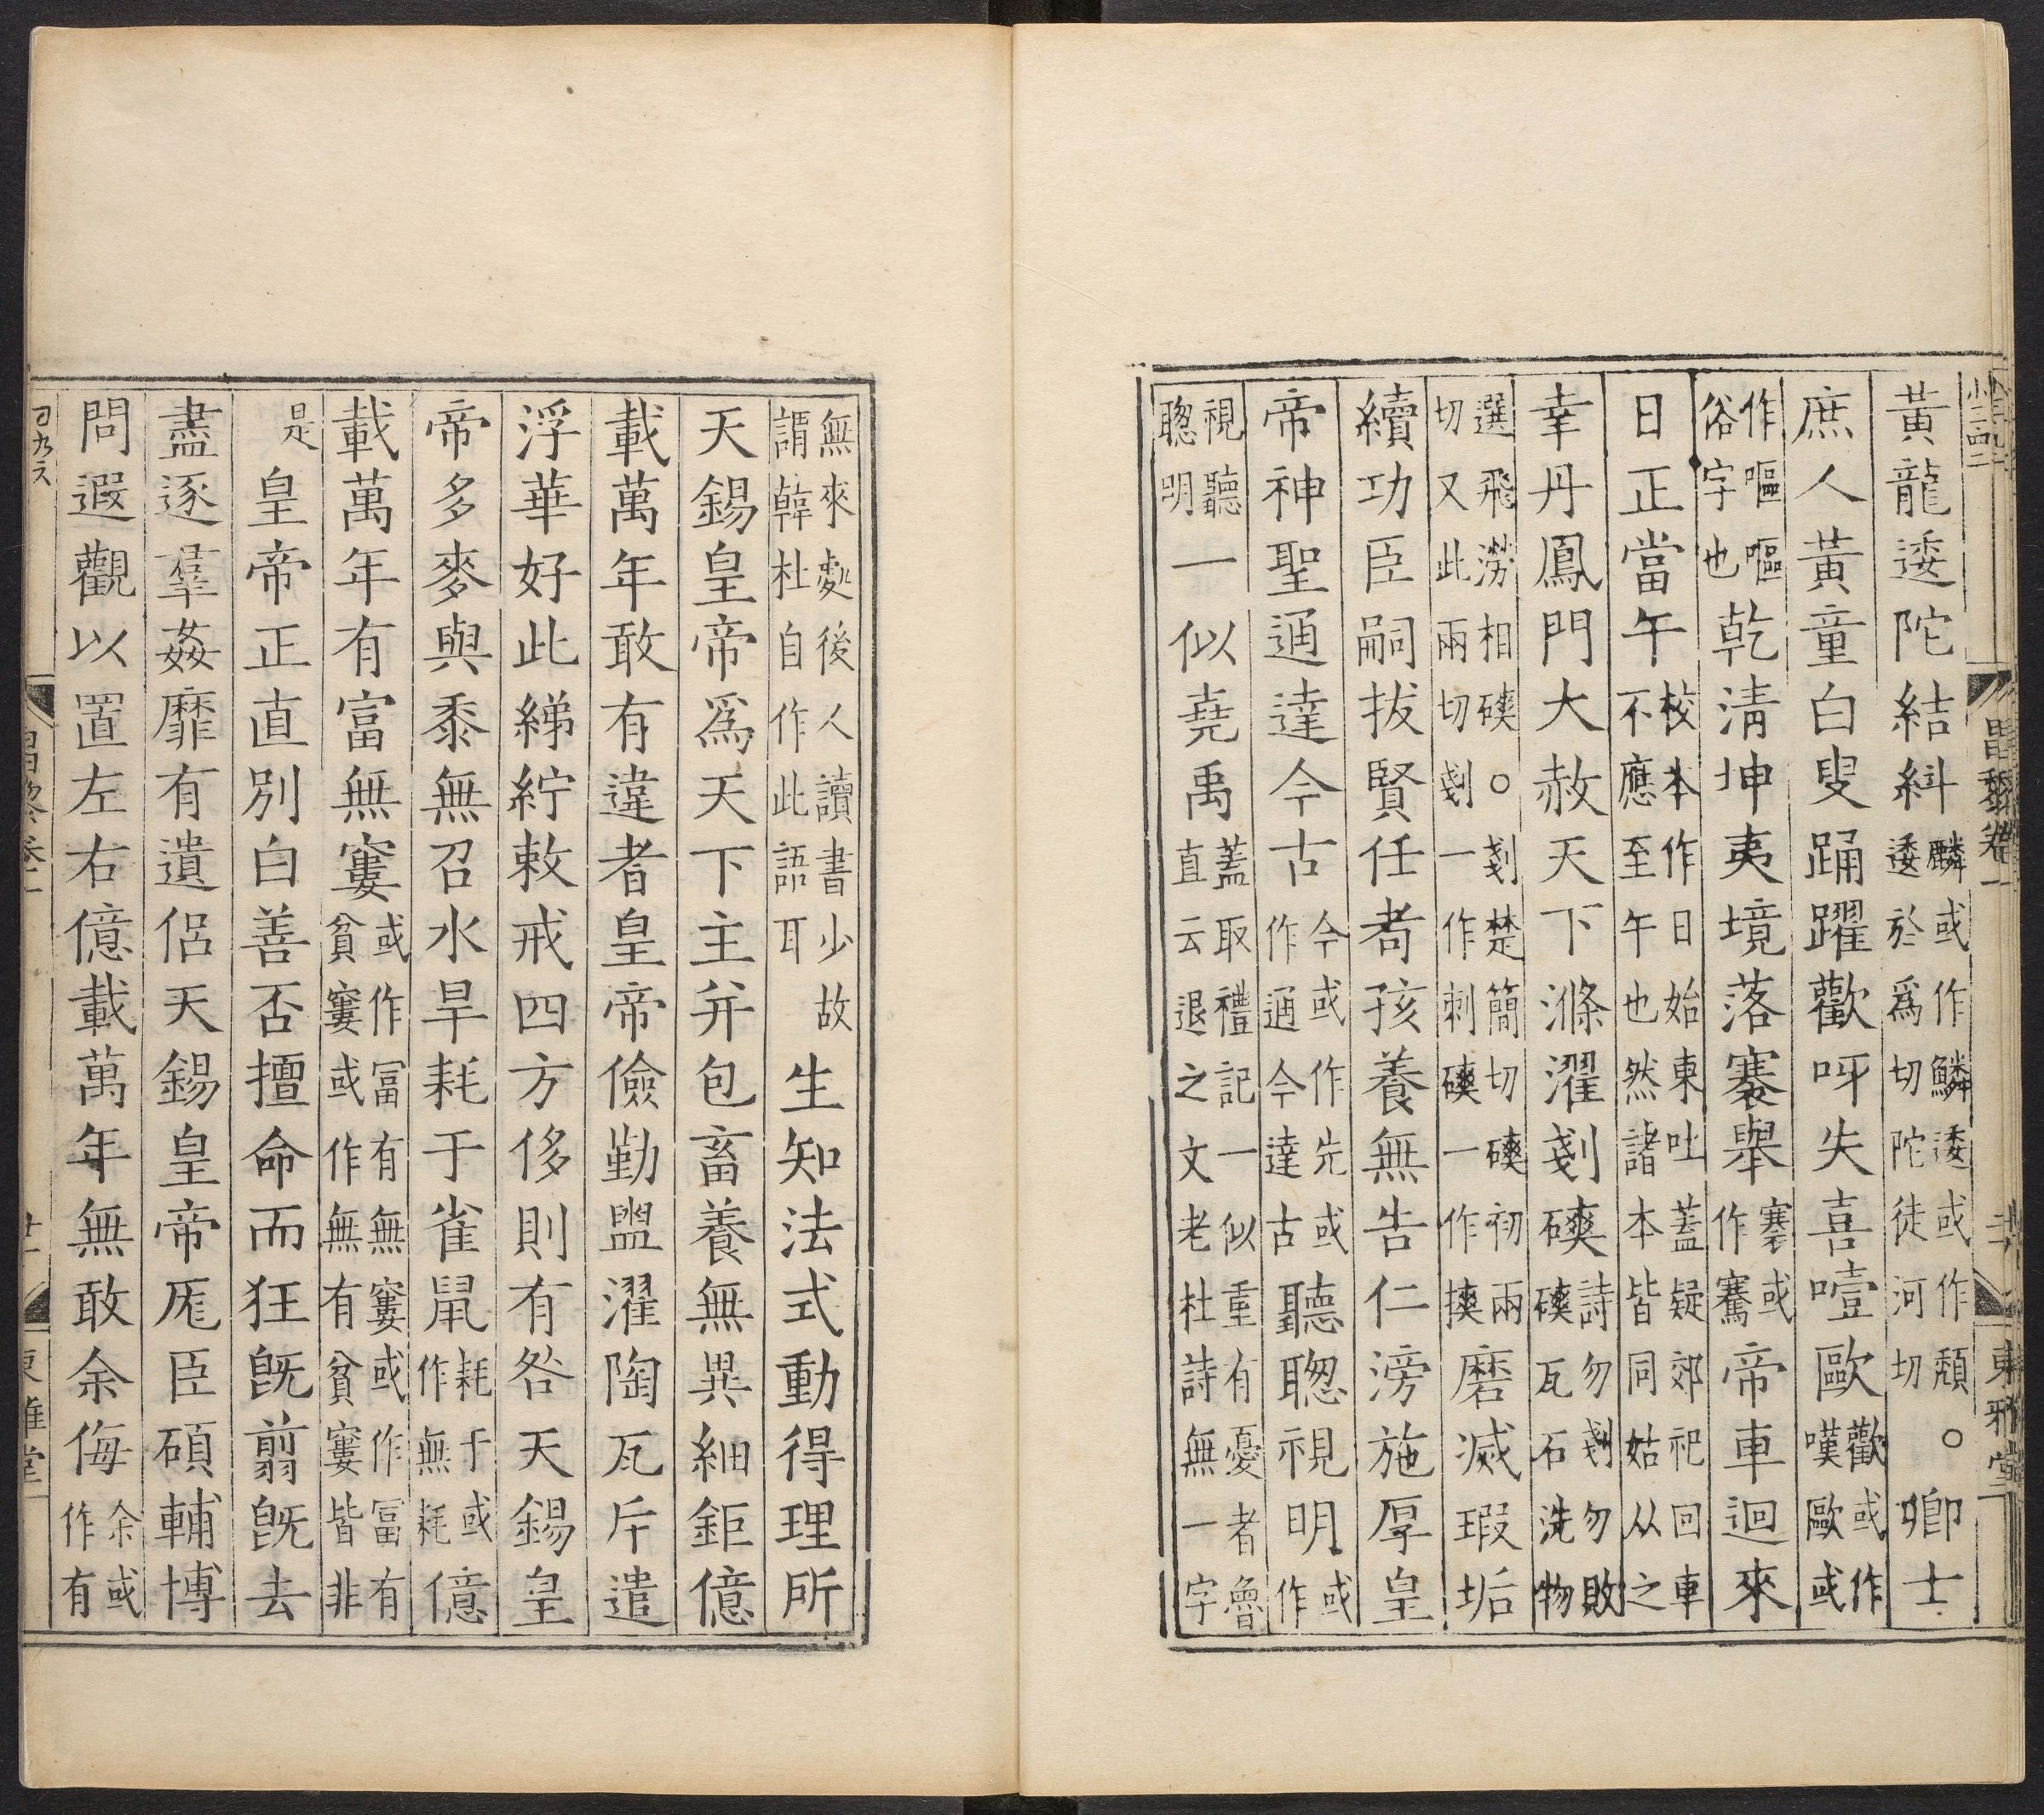 黃龍逶陀結糾麟或作鱗逶或作頹○逶於爲切陀徒河切卿士
庶人黃童白叟踊躍歡呀失喜噎歐歡或作嘆歐或
作嘔嘔俗字也乾清坤夷境落褰舉褰或作騫帝車迴來
日正當午校本作日始東吐蓋疑郊祀回車不應至午也然諸本皆同姑从之
幸丹鳳門大赦天下滌濯剗磢詩勿剗勿敗磢瓦石洗物
選飛澇相磢○剗楚簡切磢初兩切又此兩切剗一作刺磢一作摤磨滅瑕垢
續功臣嗣拔賢任耇孩養無告仁滂施厚皇
帝神聖通達今古今或作先或作通今達古聽聦視明或作
視聽聦明一似堯禹蓋取禮記一似重有憂者魯直云退之文老杜詩無一字
無來處後人讀書少故謂韓杜自作此語耳生知法式動得理所
天錫皇帝爲天下主并包畜養無異細鉅億
載萬年敢有違者皇帝儉勤盥濯陶瓦斥遣
浮華好此綈紵敕戒四方侈則有咎天錫皇
帝多麥與黍無召水旱耗于雀鼠耗于或作無耗億
載萬年有富無窶或作冨有無窶或作冨有貧窶或作無有貧窶皆非
是皇帝正直別白善否擅命而狂旣翦旣去
盡逐羣姦靡有遺侶天錫皇帝厖臣碩輔博
問遐觀以置左右億載萬年無敢余侮余或作有
昌黎卷一
東雅堂